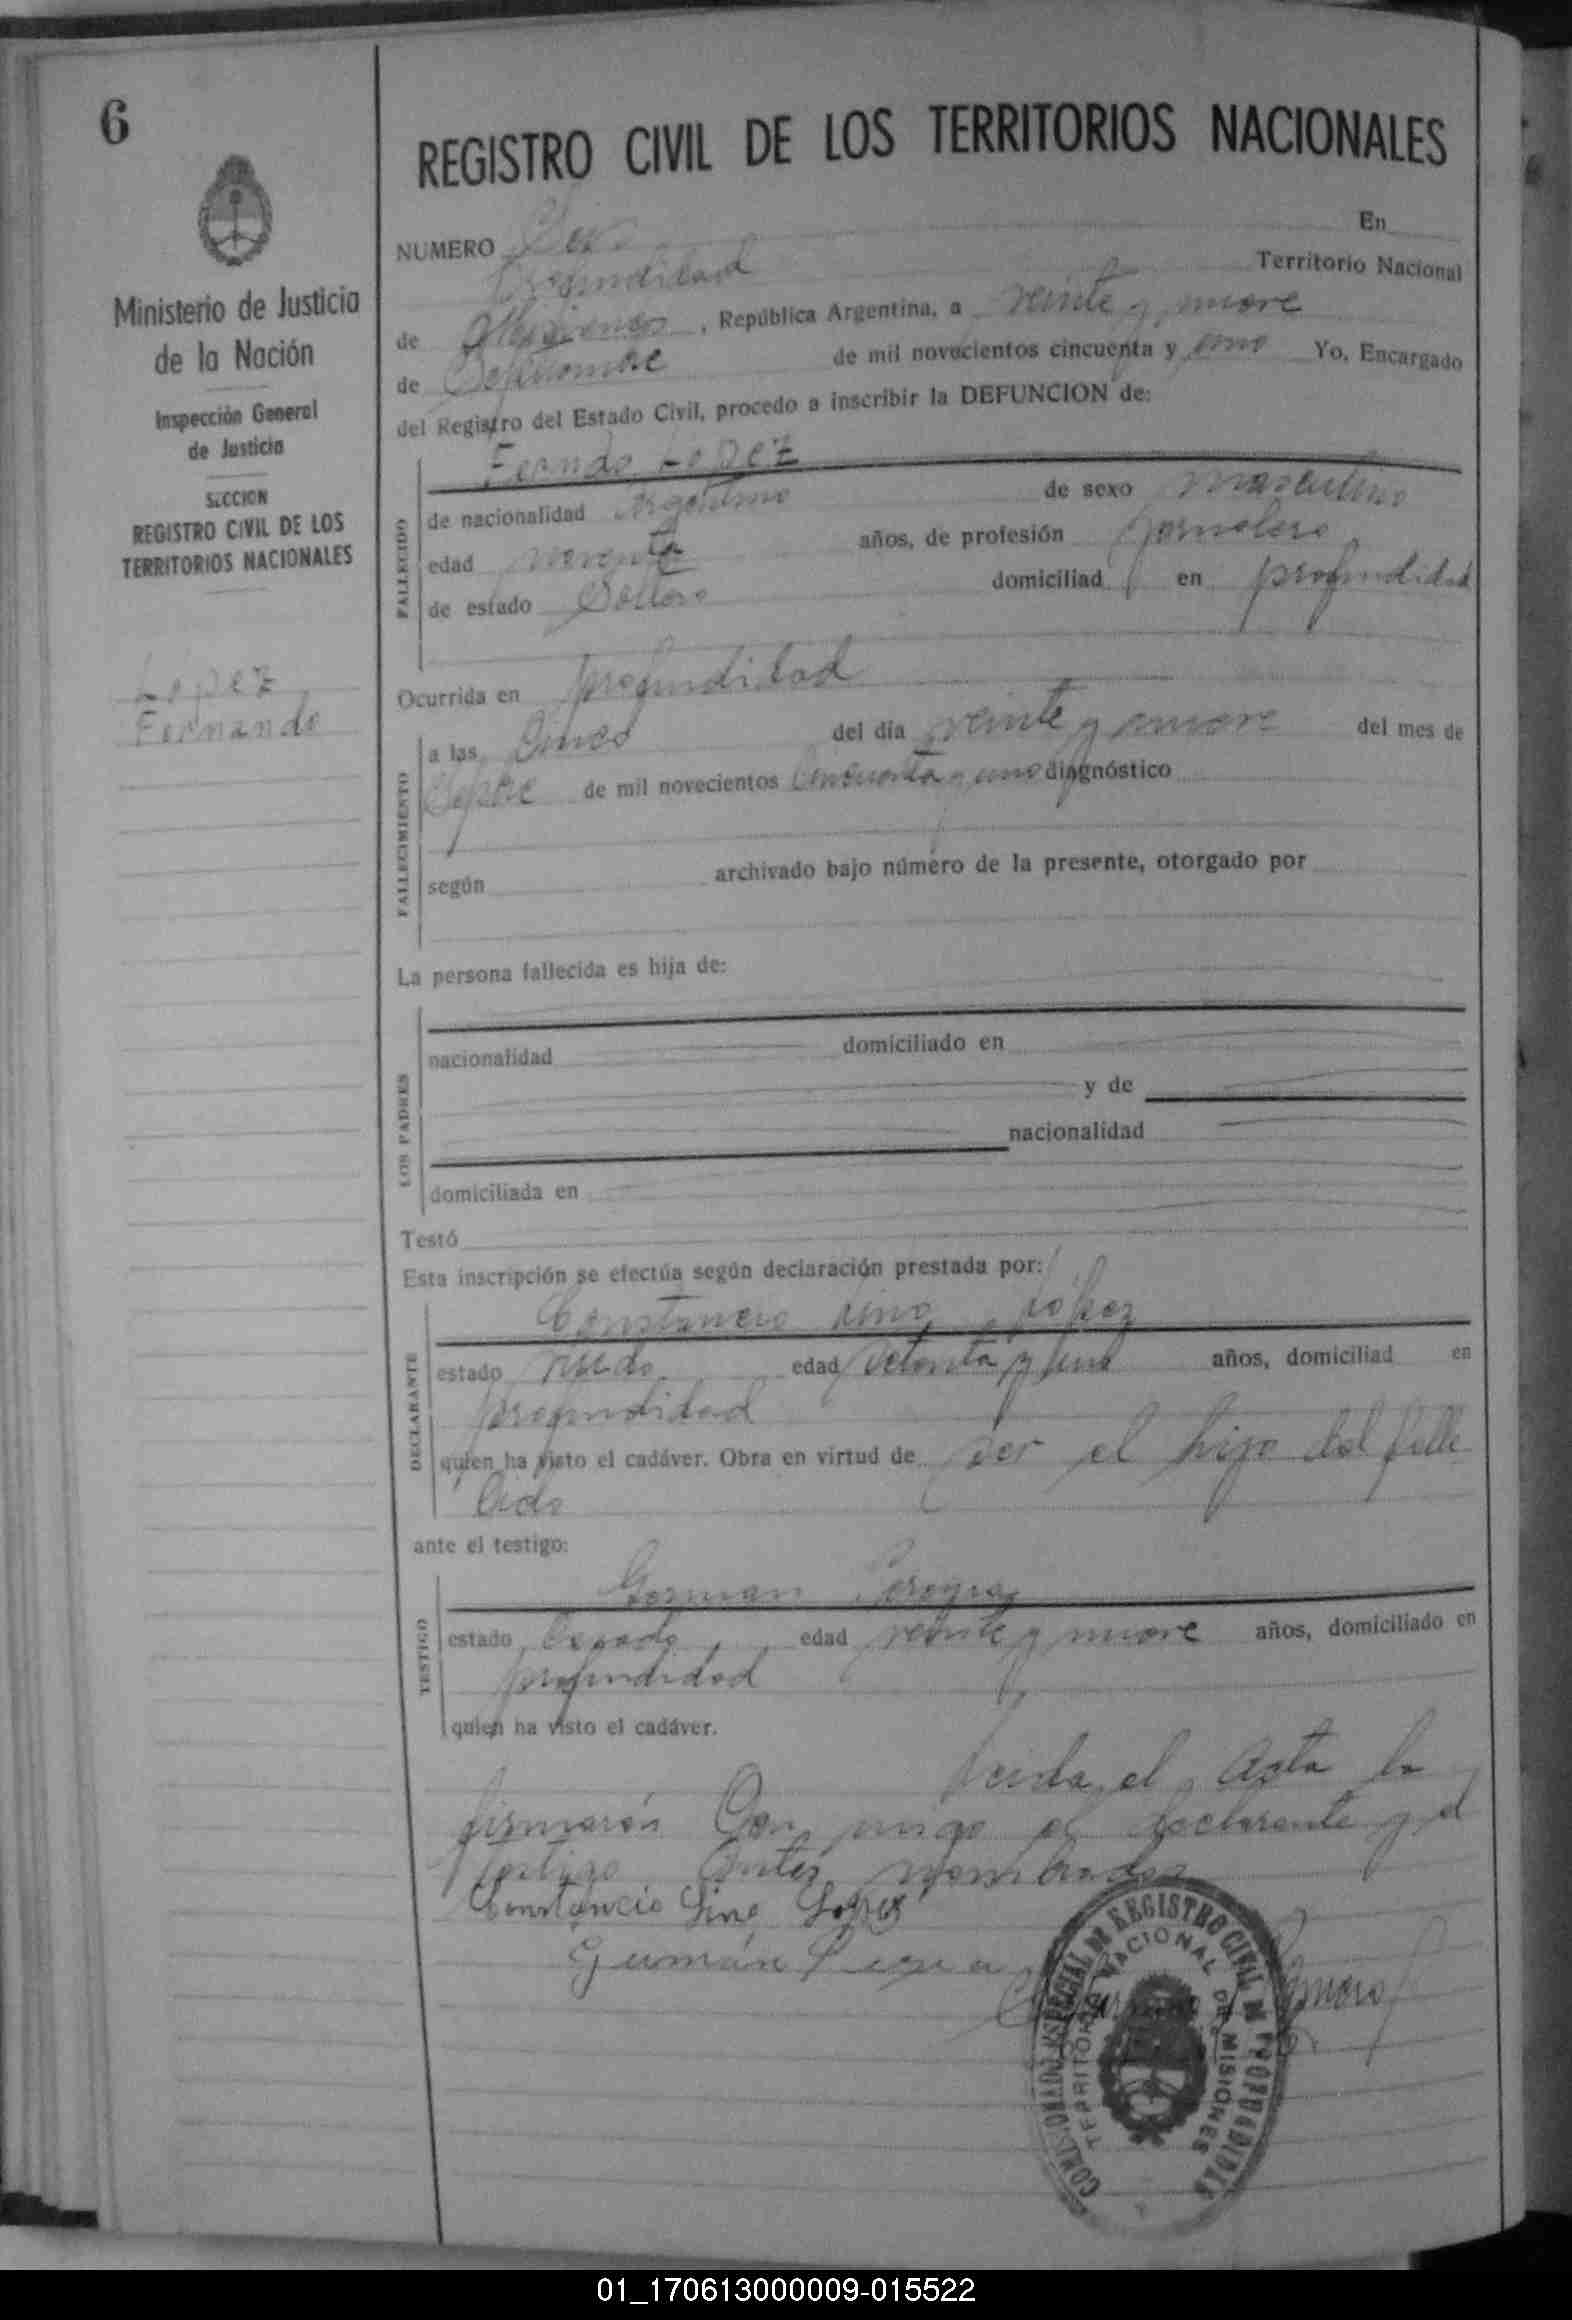 6
REGISTRO CIVIL DE LOS TERRITORIOS NACIONALES
Ministerio de Justicia
de la Nación
Inspección General
de Justicia
SECCION
REGISTRO CIVIL DE LOS
TERRITORIOS NACIONALES
Lopez
Fernando
NUMERO Seis En
Profundidad Territorio Nacional
de Misiones, República Argentina, a veinte y nueve
de de mil novecientos cincuenta y uno Yo, Encargado
del Registro del Estado Civil, procedo a inscribir la DEFUNCION de:
Fernado Lopez
FALLECIDO
de nacionalidad Argentino de sexo masculino
edad noventa años, de profesión Jornalero
de estado Soltero domiciliad en profundidad
Ocurrida en profundidad
FALLECIMIENTO
a las Cinco del día veinte y nueve del mes de
Sepbre de mil novecientos Cincuenta y uno diagnóstico
según archivado bajo número de la presente, otorgado por
La persona fallecida es hija de:
LOS PADRES
nacionalidad domiciliado en
y de
nacionalidad
domiciliada en
Testó
Esta inscripción se efectúa según declaración prestada por:
Constancio Lino López
DECLARANTE
estado edad Setenta y uno años, domiciliad en
profundidad
quien ha visto el cadáver. Obra en virtud de ser el hijo del falle
Cido
ante el testigo:
German
TESTIGO
estado Casado, edad veinte y nueve años, domiciliado en
profundidad
quien ha visto el cadáver.
Leida el Acta la
firmarón Con migo el declarante y el
testigo Antes nombrados
Constancio Lino Lopez
Germán
COMISIONADO ESPECIAL DE REGISTRO CIVIL DE PROFUNDIDAD
TERRITORIO NACIONAL DE MISIONES
01_170613000009-015522